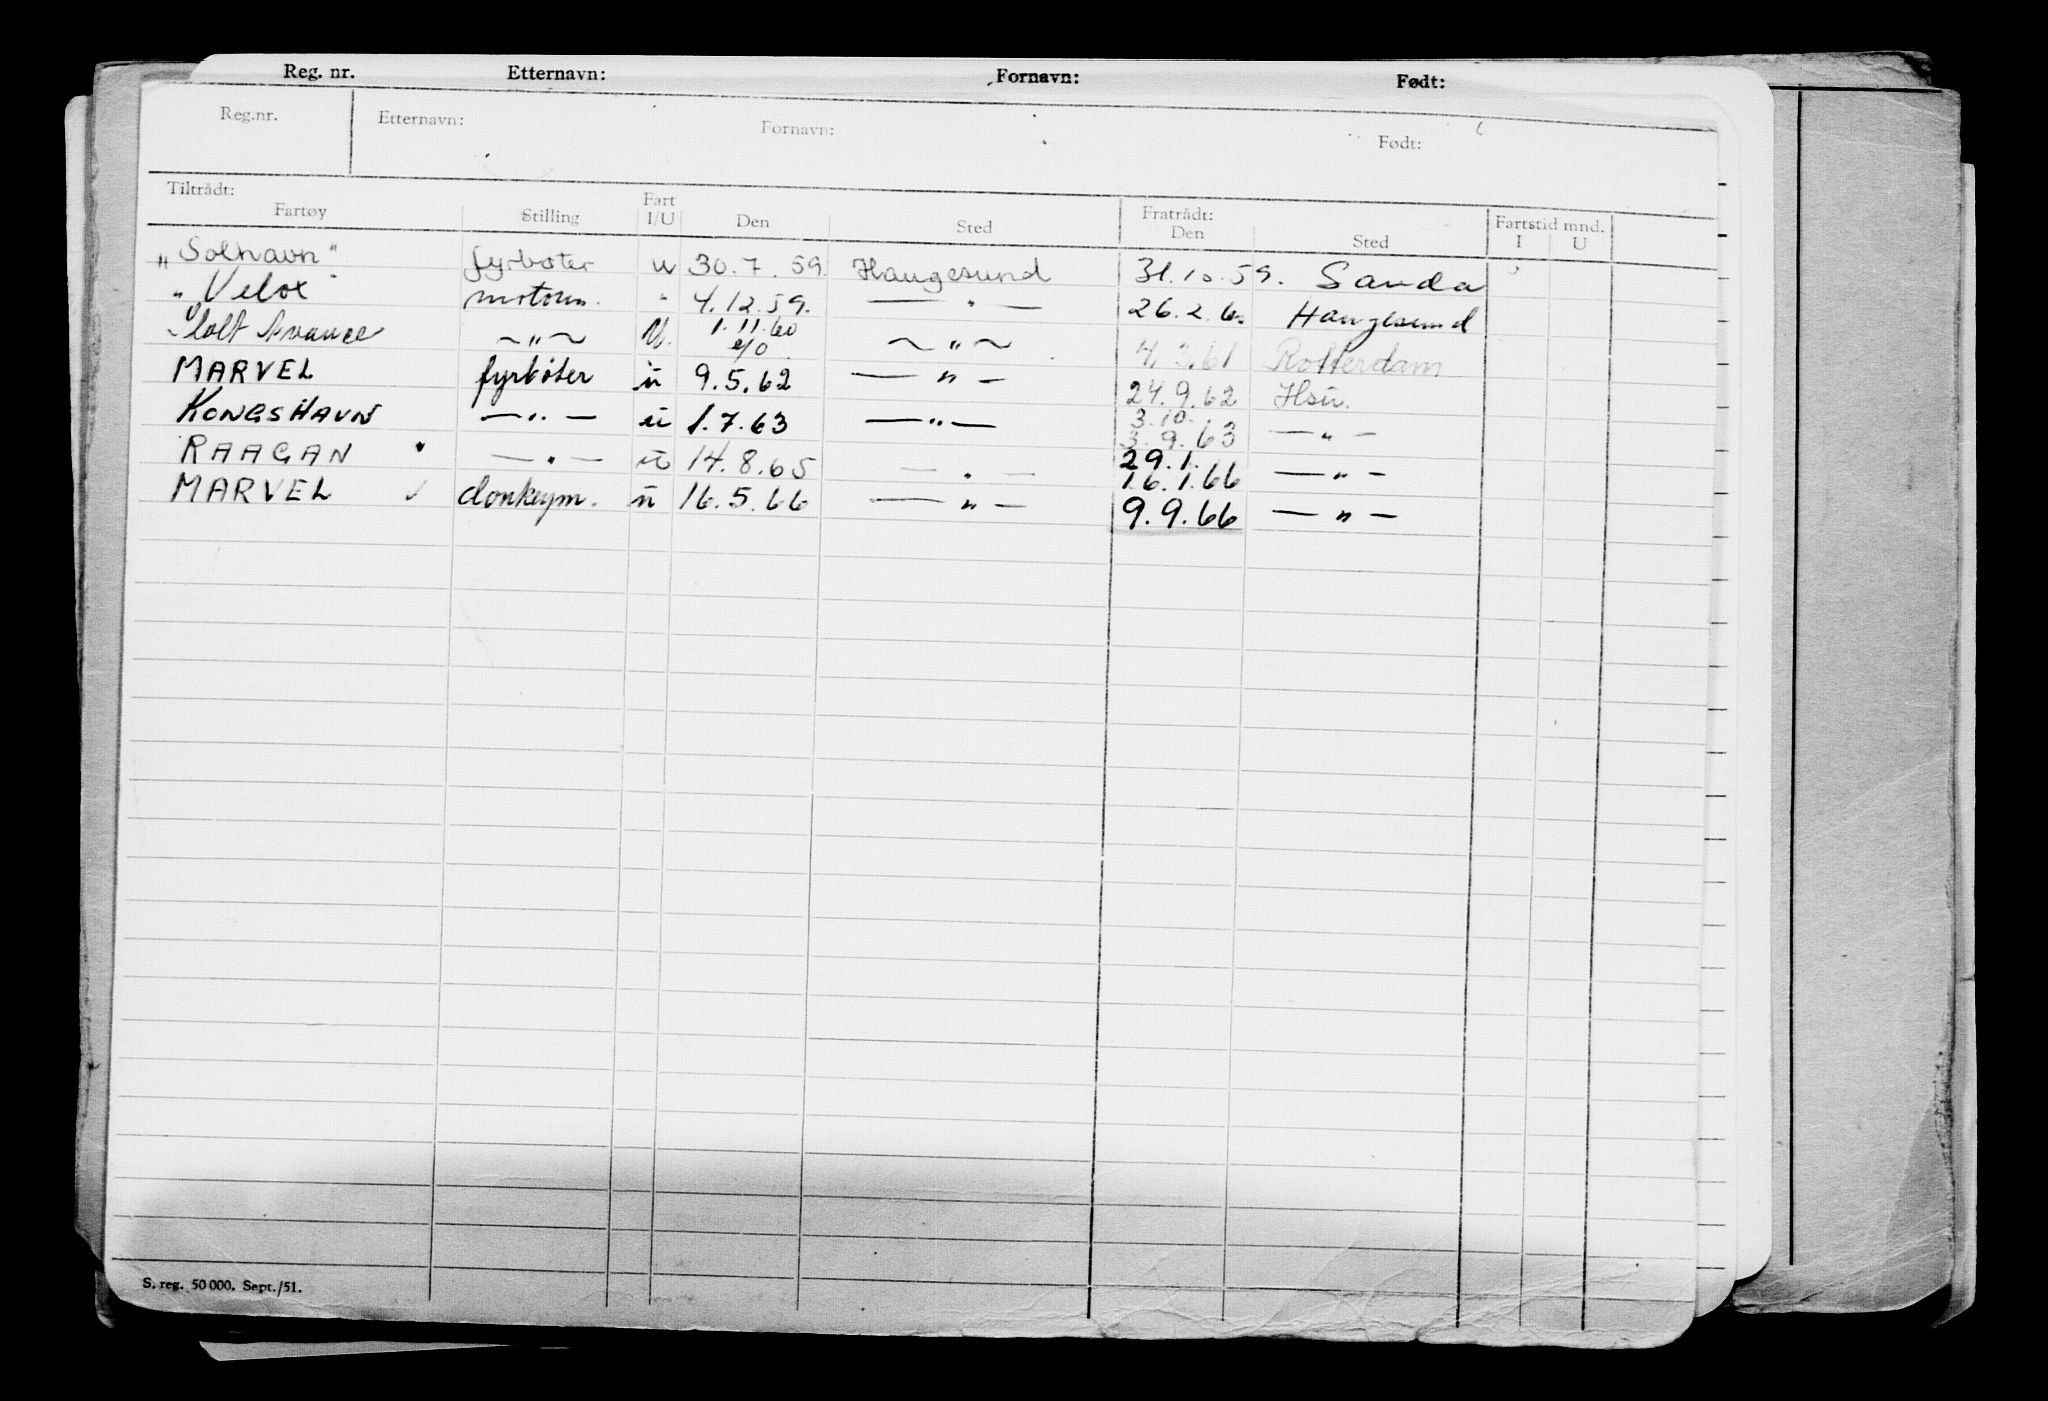 Reg. nr. Etternavn: Fornavn: Født:
Reg.nr. Etternavn: Fornavn: Født:
Tiltrådt: Fratrådt: Fartstid mnd.
Fartøy Stilling Fart I/U Den Sted Den Sted I U
„Solhavn" fyrbøter u 30.7.59. Haugesund 31.10.59. Sauda
„Velox" motorm. " 4.12.59. — " — 26.2.60 Haugesund
~ " ~ U. 1.11.60 ~ " ~ 4.3.61 Rotterdam
MARVEL fyrbøter u 9.5.62 — " — 24.9.62 Hsu.
3.10.
KONGSHAVN — " — u 1.7.63 — " — 3.9.63 — " —
29.1.
RAAGAN — " — u 14.8.65 — " — 16.1.66 — " —
MARVEL ✓ donkeym. u 16.5.66 — " — 9.9.66 — " —
S. reg. 50 000. Sept./51.